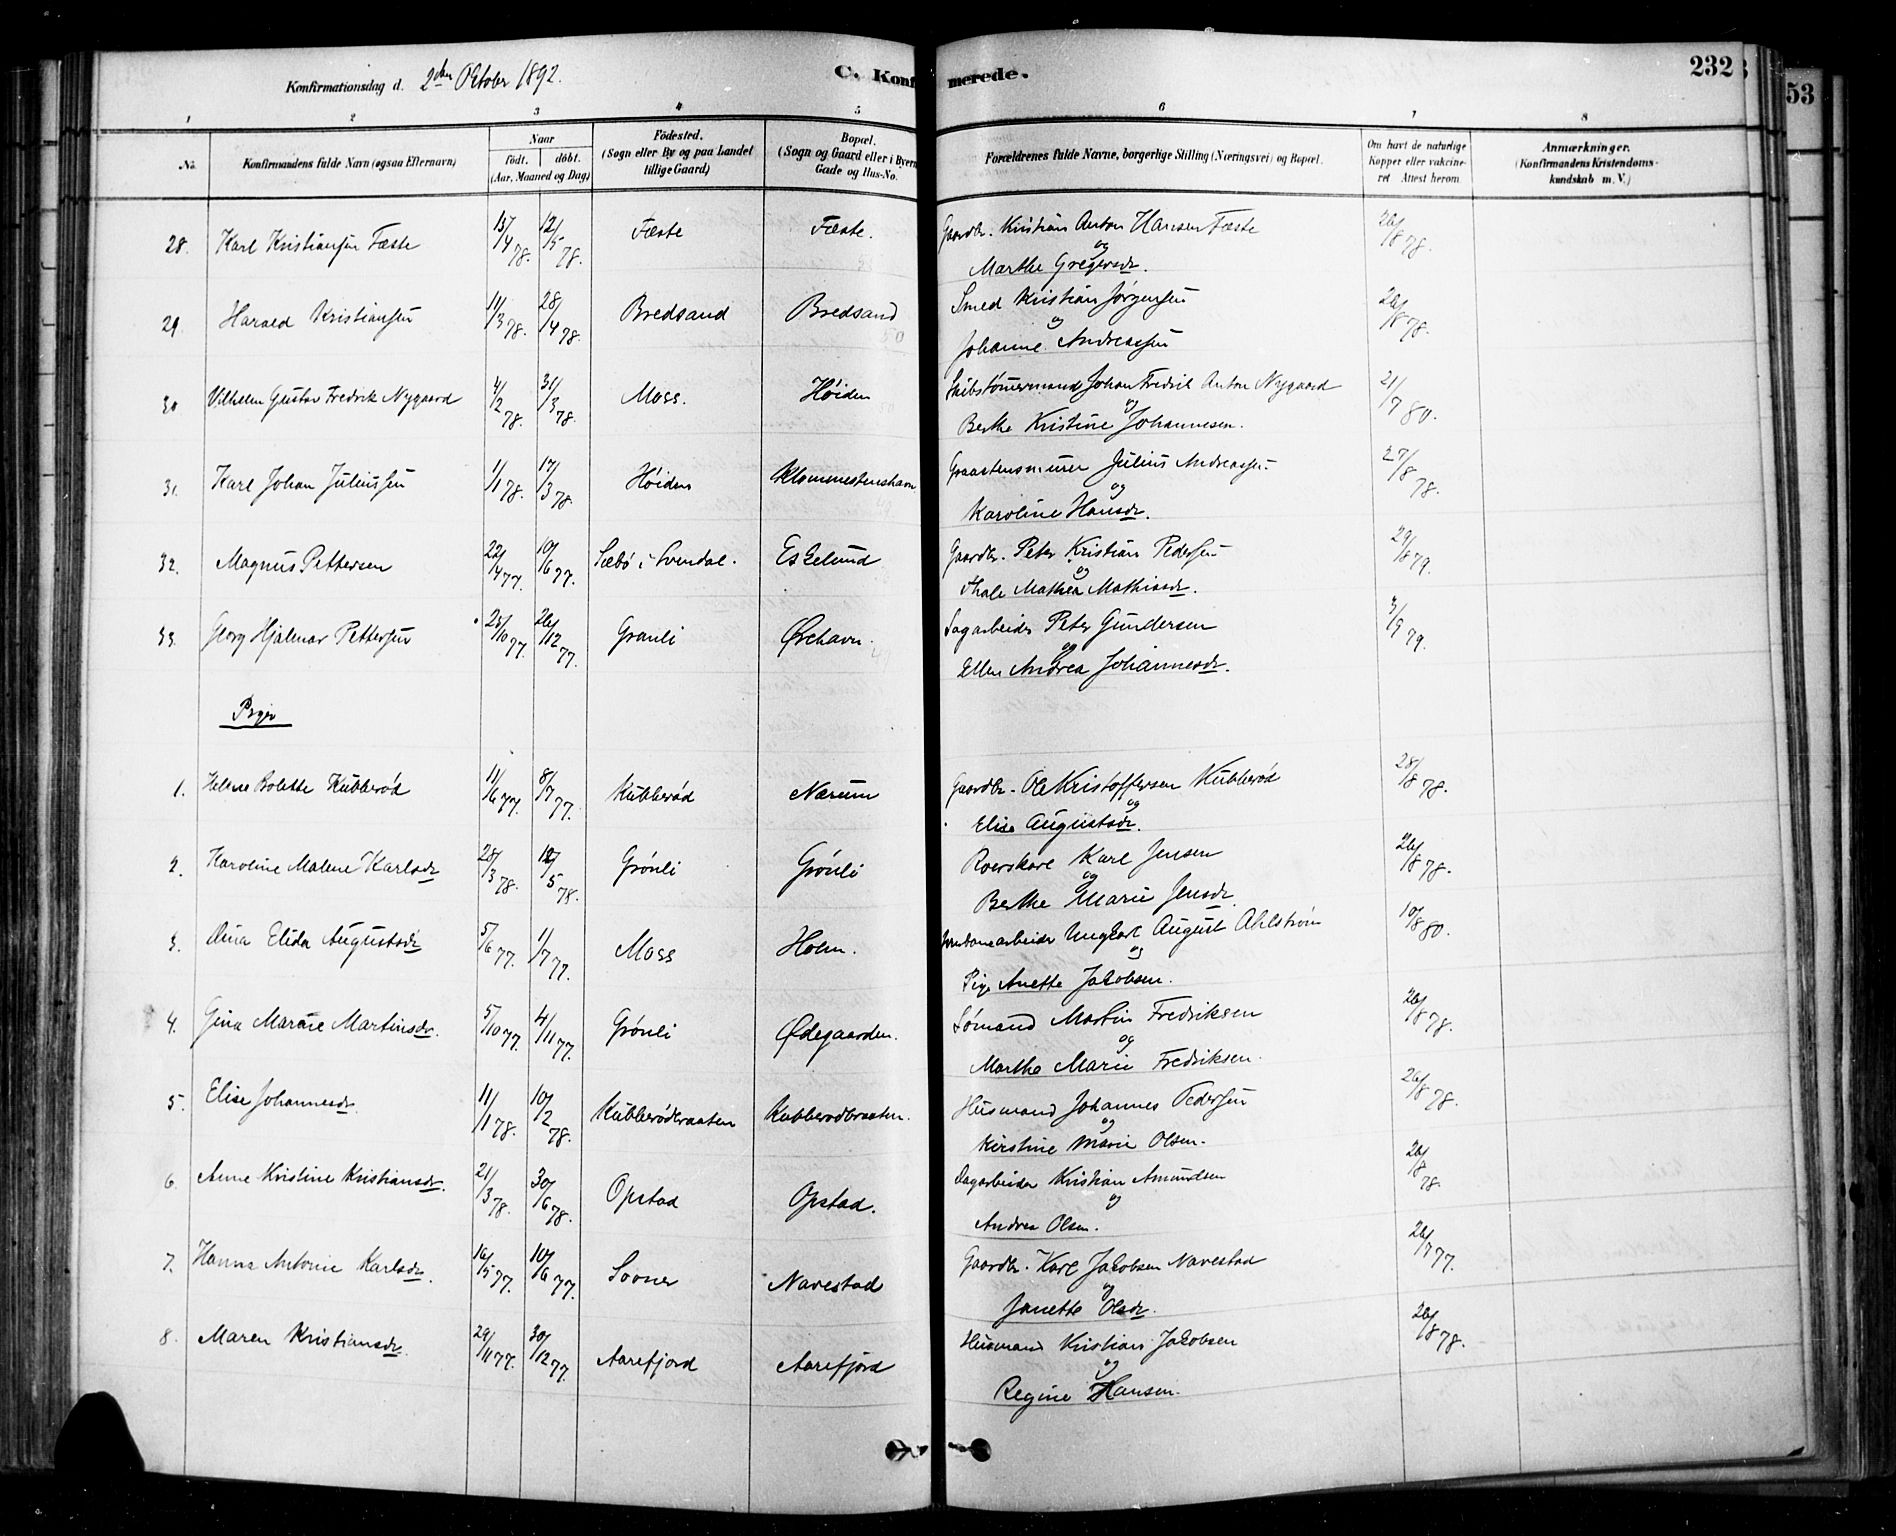 Konfirmationsdag d. 2den Oktober 1892.
C. Konfirmerede.
232
53
1 2 3 4 5 6 7 8
No. Konfirmandens fulde Navn (ogsaa Efternavn) Naar født. døbt. (Aar, Maaned og Dag) Fødested. (Sogn eller By og paa Landet tillige Gaard) Bopæl. (Sogn og Gaard eller i Byern Gade og Hus-No. Forældrenes fulde Navne, borgerlige Stilling (Næringsvei) og Bopæl. Om havt de naturlige Kopper eller vakcineret Attest herom. Anmærkninger. (Konfirmandens Kristendomskundskab m. V.)
28. Karl Kristiansen Fæste 13/4 78. 12/5 78. Fæste Fæste. Gaardbr. Kristian Anton Hansen Fæste 26/8 78.
og
Marthe Gregersdr.
29. Harald Kristiansen 11/3 78. 28/4 78. Bredsand Bredsand Smed Kristian Jørgensen 26/8 78.
og
Johanne Andreassen
30 Vilhelm Gustav Fredrik Nygaard 4/2 78. 31/3 78. Moss. Høiden Skibstømermand Johan Fredrik Anton Nygaard 21/7 80.
og
Berthe Kristine Johannesen.
31. Karl Johan Juliussen 1/1 78. 17/3 78. Høiden Klommestenshavn Graastensmurer Julius Andreassen 27/8 78.
og
Karoline Hansdr.
32. Magnus Pettersen 22/4 77. 10/6 77. Sæbø i Svendal. Eskelund Gaardbr. Peter Kristian Pedersen 29/8 79.
og
Thale Mathea Mathisdr.
33. Georg Hjalmar Pettersen 28/10 77. 26/12 77. Granli Ørehavn. Sagarbeider Peter Gundersen 3/9 79.
og
Ellen Andrea Johannesdr.
Piger
1. Helene Bolette Kubberød 11/6 77. 8/7 77. Kubberød Nærum Gaardbr. Ole Kristoffersen Kubberød 28/8 78.
og
Elise Augustsdr.
2. Karoline Malene Karlsdr 28/3 78. 12/5 78. Grønli Grønli Roerskarl Karl Jensen 26/8 78.
og
Berthe Marie Jensdr.
3. Dina Elida Augustsdr 5/6 77. 1/7 77. Moss Holm. Ungkarl August Ahlstrøm 10/8 80.
og
Pige Anette Jakobsen.
4. Gina Marie Martinsdr. 5/10 77. 4/11 77. Grønli Ødegaarden. Sømand Martin Fredriksen 26/8 78.
og
Marthe Marie Fredriksen.
5. Elise Johannesdr. 11/1 78. 10/2 78. Kubberødbraaten Kubberødbraaten. Husmand Johannes Pedersen 26/8 78.
og
Kirstine Marie Olsen.
6. Anne Kristine Kristiansdr. 21/3 78. 30/6 78. Opstad Opstad. Dagarbeider Kristian Amundsen 26/8 78.
og
Andrea Olsen.
7. Hanna Antonie Karlsdr. 16/5 77. 10/6 77. Sooner Navestad Gaardbr. Karl Jakobsen Navestad 26/7 77.
og
Janette Olsdr.
8. Maren Kristiansdr. 29/11 77. 30/12 77. Aarefjord Aarefjord Husmand Kristian Jakobsen 26/8 78.
og
Regine Hansen.